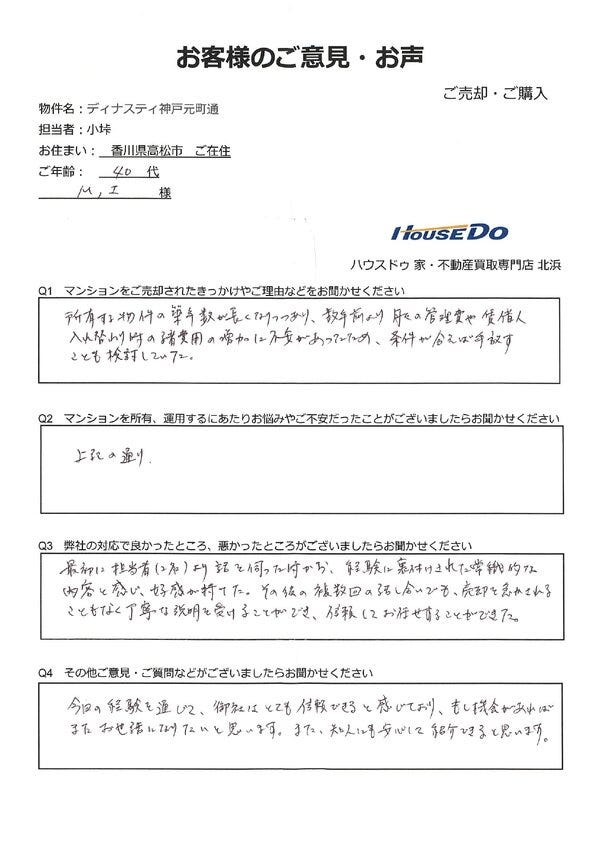 お客様のご意見・お声
ご売却・ご購入
物件名：ディナスティ神戸元町通
担当者：小垰
お住まい： 香川県高松市 ご在住
ご年齢： 40 代
M, I 様
HOUSE DO
ハウスドゥ 家・不動産買取専門店 北浜
Q1 マンションをご売却されたきっかけやご理由などをお聞かせください
所有する物件の築年数が長くなりつつあり、数年前より 月々の管理費や賃借人
入れ替わり時の諸費用の増加に不安があったため、条件が合えば手放す
ことも検討していた。
Q2 マンションを所有、運用するにあたりお悩みやご不安だったことがございましたらお聞かせください
上記の通り.
Q3 弊社の対応で良かったところ、悪かったところがございましたらお聞かせください
最初に担当者(2名)より話を伺った時から、経験に裏付けされた常識的な
内容と感じ、好感が持てた。その後の複数回の話し合いでも、売却を急かされる
こともなく丁寧な説明を受けることができ、信頼してお任せすることができた。
Q4 その他ご意見・ご質問などがございましたらお聞かせください
今回の経験を通じて、御社はとても信頼できると感じており、もし機会があれば
またお世話になりたいと思います。また、知人にも安心して紹介できると思います。